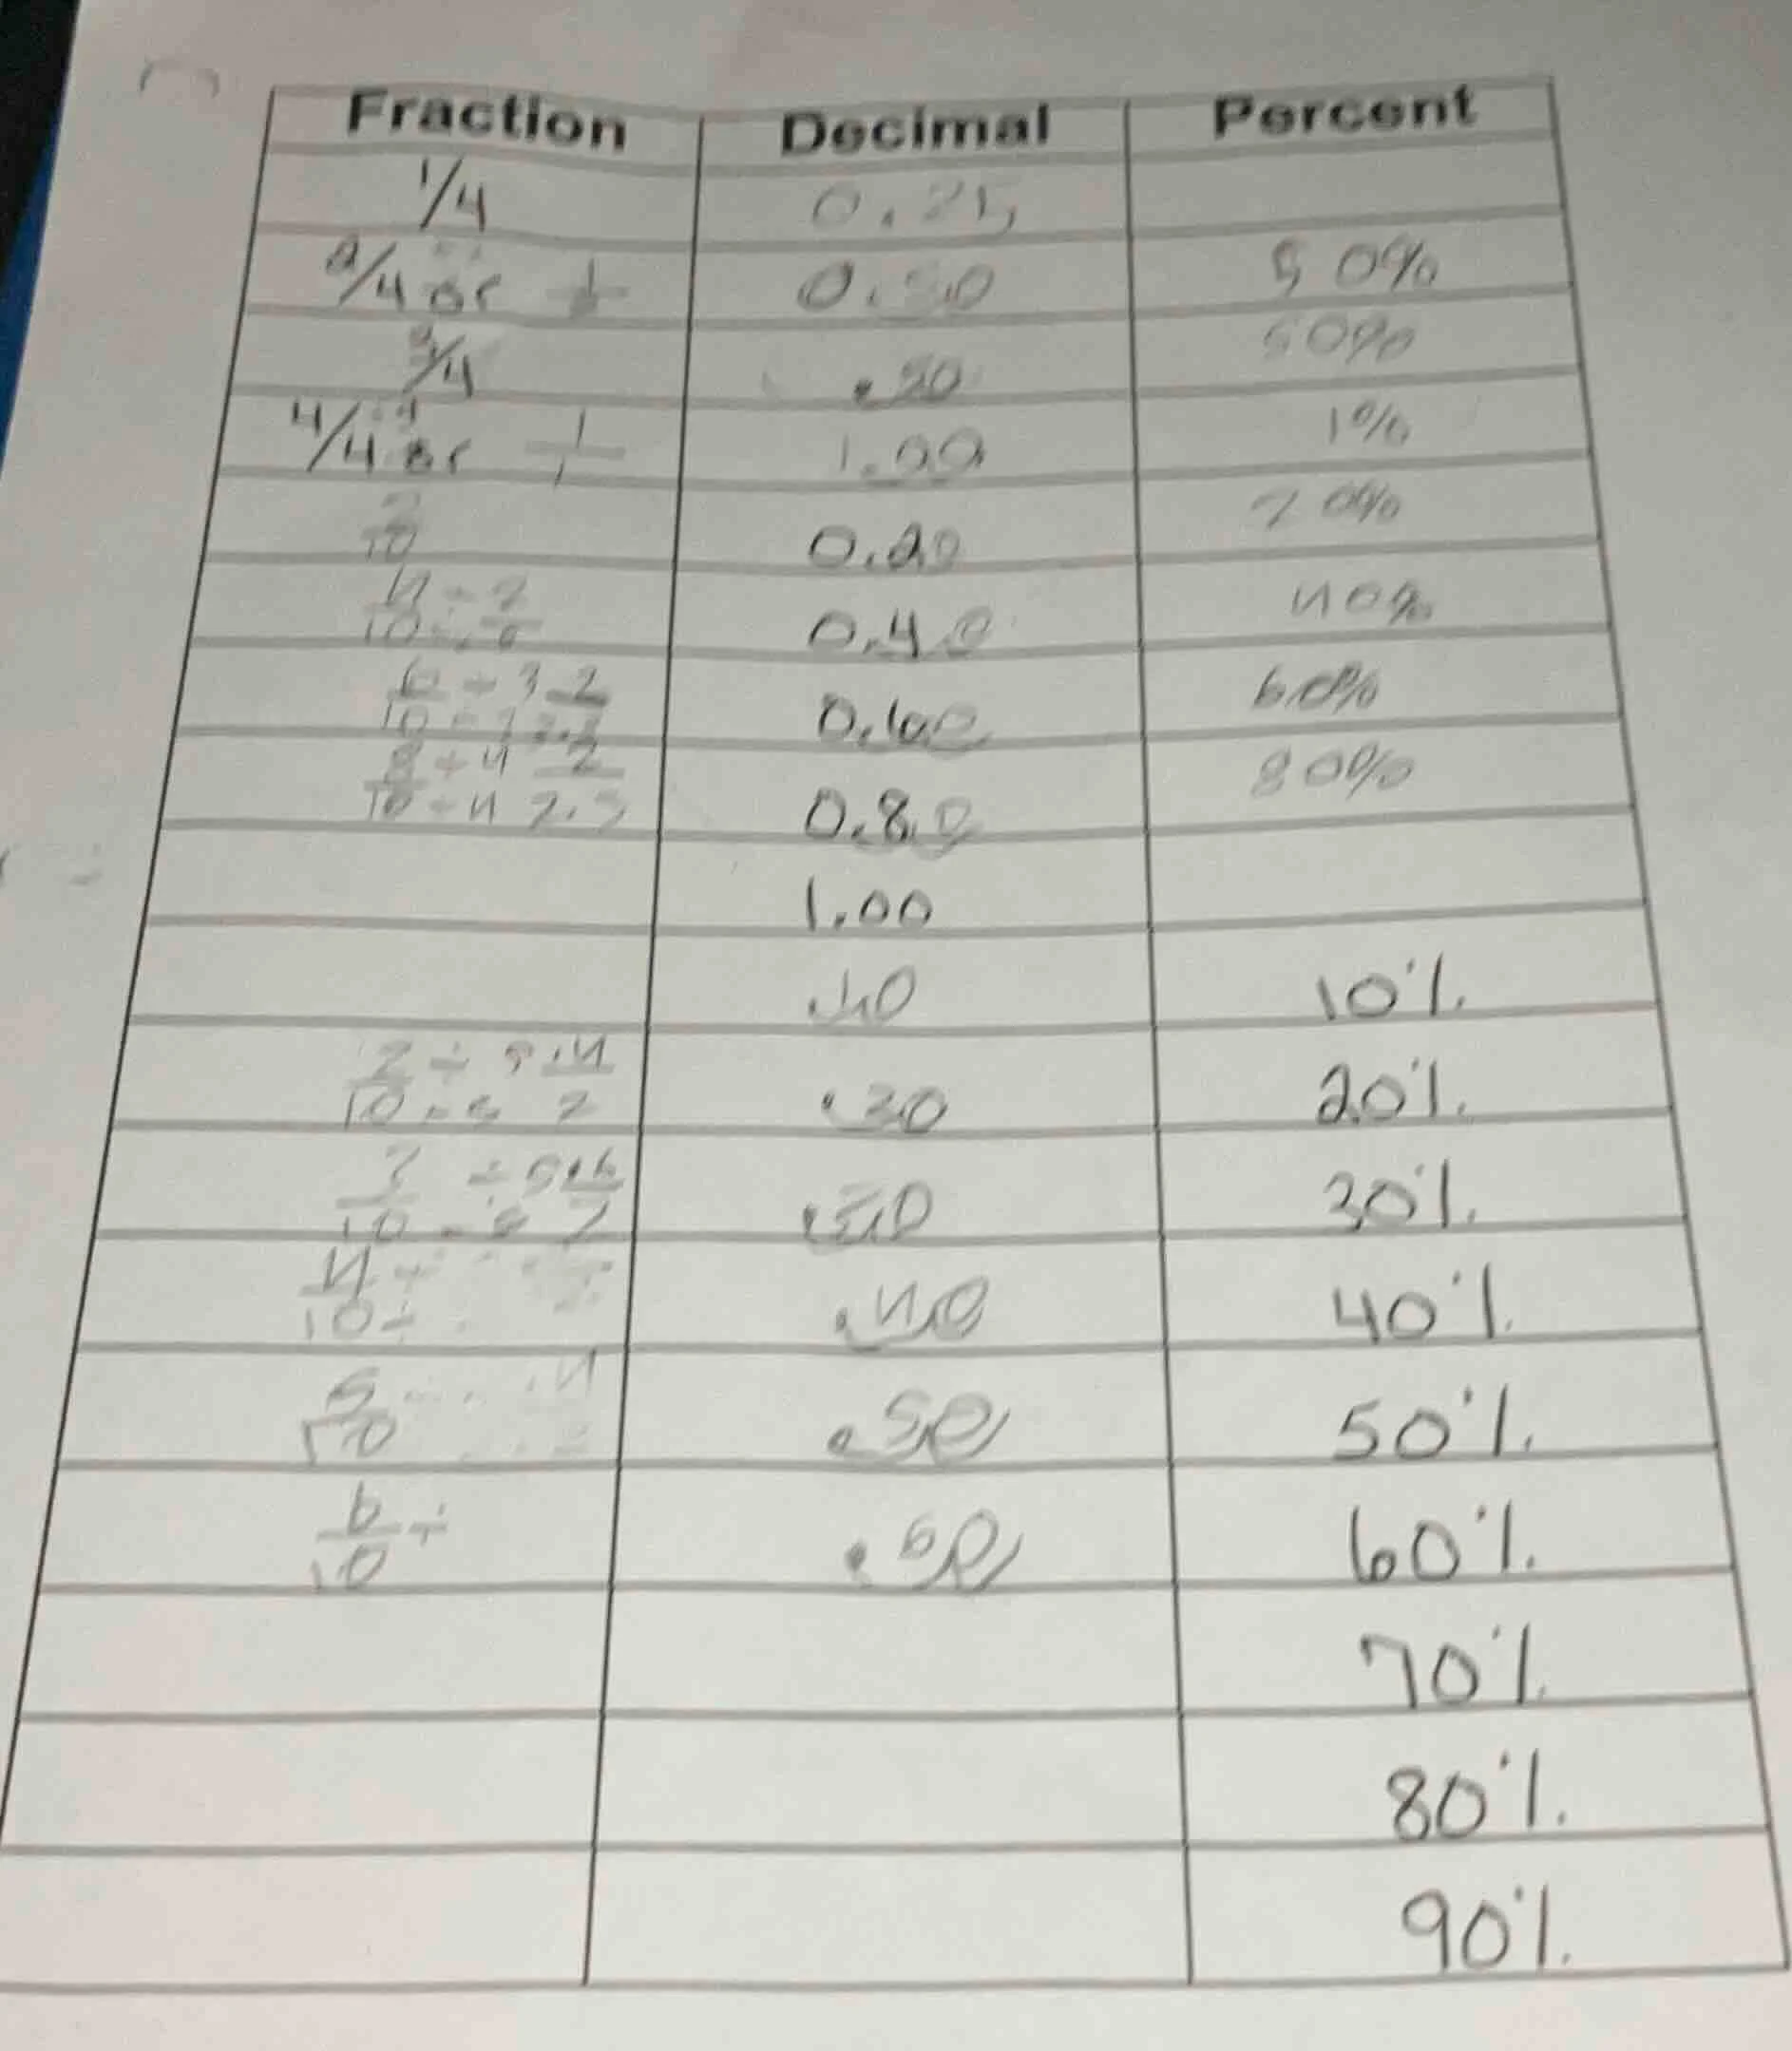 Fraction Decimal Percent
1/4 0.25
2/4 or 0.50 50%
3/4 .50 50%
4/4 or 1/1 1.00 1%
2/10 0.20 20%
4/10 ÷ 2 0.40 40%
6/10 ÷ 3 2 0.60 60%
8/10 ÷ 4 2/2.5 0.80 80%
1.00
10%
2/10 ÷ 5 .4/2 20%
3/10 ÷ 5 .6/2 30%
4/10 ÷ .40 40%
5/10 .50 50%
6/10 ÷ .60 60%
70%
80%
90%